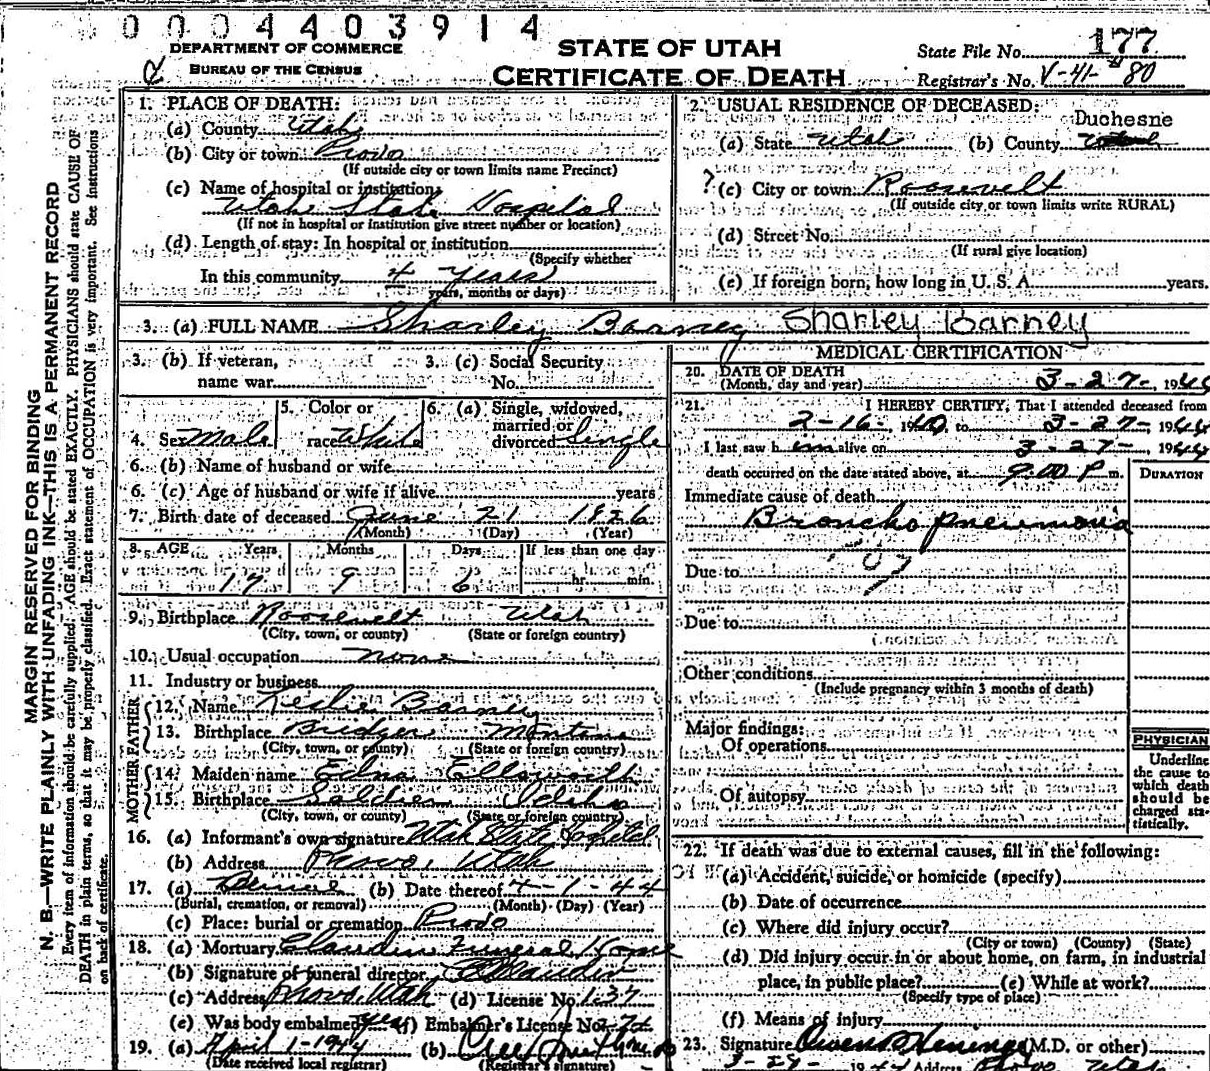 0004403914
DEPARTMENT OF COMMERCE
BUREAU OF THE CENSUS
STATE OF UTAH
CERTIFICATE OF DEATH
State File No. 177
Registrar's No. V-41-#80
MARGIN RESERVED FOR BINDING
N. B.—WRITE PLAINLY WITH UNFADING INK—THIS IS A PERMANENT RECORD
Every item of information should be carefully supplied. AGE should be stated EXACTLY. PHYSICIANS should state CAUSE OF
DEATH in plain terms, so that it may be properly classified. Exact statement of OCCUPATION is very important. See instructions
on back of certificate.
1. PLACE OF DEATH:
(a) County Utah
(b) City or town Provo
(If outside city or town limits name Precinct)
(c) Name of hospital or institution:
Utah State Hospital
(If not in hospital or institution give street number or location)
(d) Length of stay: In hospital or institution
(Specify whether
In this community 4 years
years, months or days)
2. USUAL RESIDENCE OF DECEASED:
Duchesne
(a) State Utah (b) County Utah
? (c) City or town Roosevelt
(If outside city or town limits write RURAL)
(d) Street No.
(If rural give location)
(e) If foreign born, how long in U. S. A. years.
3. (a) FULL NAME Sharley Barney Sharley Barney
3. (b) If veteran,
name war
3. (c) Social Security
No.
4. Sex Male
5. Color or
race White
6. (a) Single, widowed,
married or
divorced Single
6. (b) Name of husband or wife
6. (c) Age of husband or wife if alive years
7. Birth date of deceased June 21 1926
(Month) (Day) (Year)
8. AGE Years Months Days If less than one day
17 9 6 hr. min.
9. Birthplace Roosevelt Utah
(City, town, or county) (State or foreign country)
10. Usual occupation none
11. Industry or business
FATHER
12. Name Leslie Barney
13. Birthplace Bridger Montana
(City, town, or county) (State or foreign country)
MOTHER
14. Maiden name Edna Ellsworth
15. Birthplace Soldier Idaho
(City, town, or county) (State or foreign country)
16. (a) Informant's own signature Utah State Hospital
(b) Address Provo, Utah
17. (a) (b) Date thereof 4-1-44
(Burial, cremation, or removal) (Month) (Day) (Year)
(c) Place: burial or cremation Provo
18. (a) Mortuary Claudin Funeral Home
(b) Signature of funeral director Claudin
(c) Address Provo, Utah (d) License No. 137
(e) Was body embalmed yes (f) Embalmer's License No.
19. (a) April 1-1944 (b)
(Date received local registrar) (Registrar's signature)
MEDICAL CERTIFICATION
20. DATE OF DEATH
(Month, day and year) 3-27-, 1944
21. I HEREBY CERTIFY, That I attended deceased from
2-16-, 1940, to 3-27-, 1944
I last saw h im alive on 3-27-, 1944
death occurred on the date stated above, at 9:00 P. m.
DURATION
Immediate cause of death
Broncho pneumonia
Due to
Due to
Other conditions
(Include pregnancy within 3 months of death)
Major findings:
Of operations
Of autopsy
PHYSICIAN
Underline
the cause to
which death
should be
charged sta-
tistically.
22. If death was due to external causes, fill in the following:
(a) Accident, suicide, or homicide (specify)
(b) Date of occurrence
(c) Where did injury occur?
(City or town) (County) (State)
(d) Did injury occur in or about home, on farm, in industrial
place, in public place? (e) While at work?
(Specify type of place)
(f) Means of injury
23. Signature (M.D. or other)
3-29- 1944 Address Provo Utah